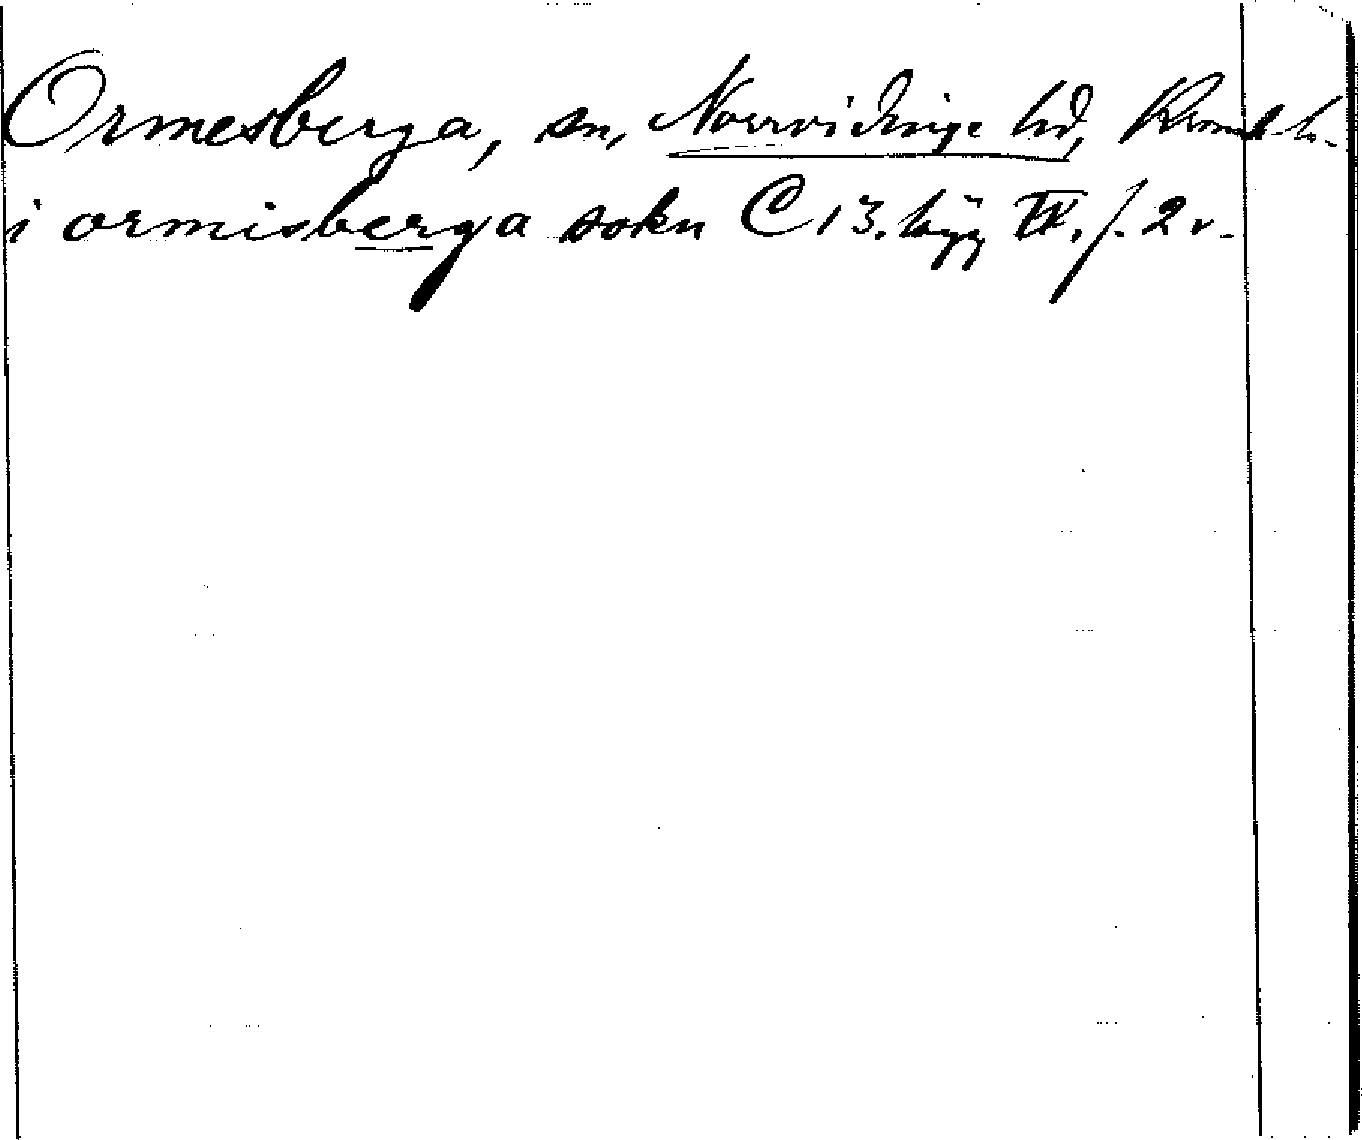 Ormesberga, sn, Norrvidinge hd, Kronob. l.
i ormisberga sokn C 13. hyg IV. f. 2 v.